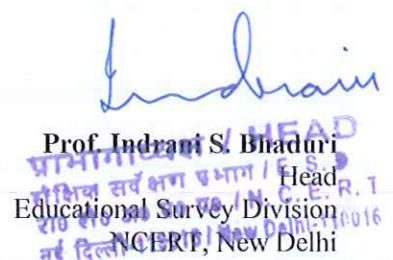 Indrani
Prof. Indrani S. Bhaduri
Head
Educational Survey Division
NCERT, New Delhi
/ HEAD
/ E. S. D
/ N. C. E. R. T
नई दिल्ली / New Delhi-110016